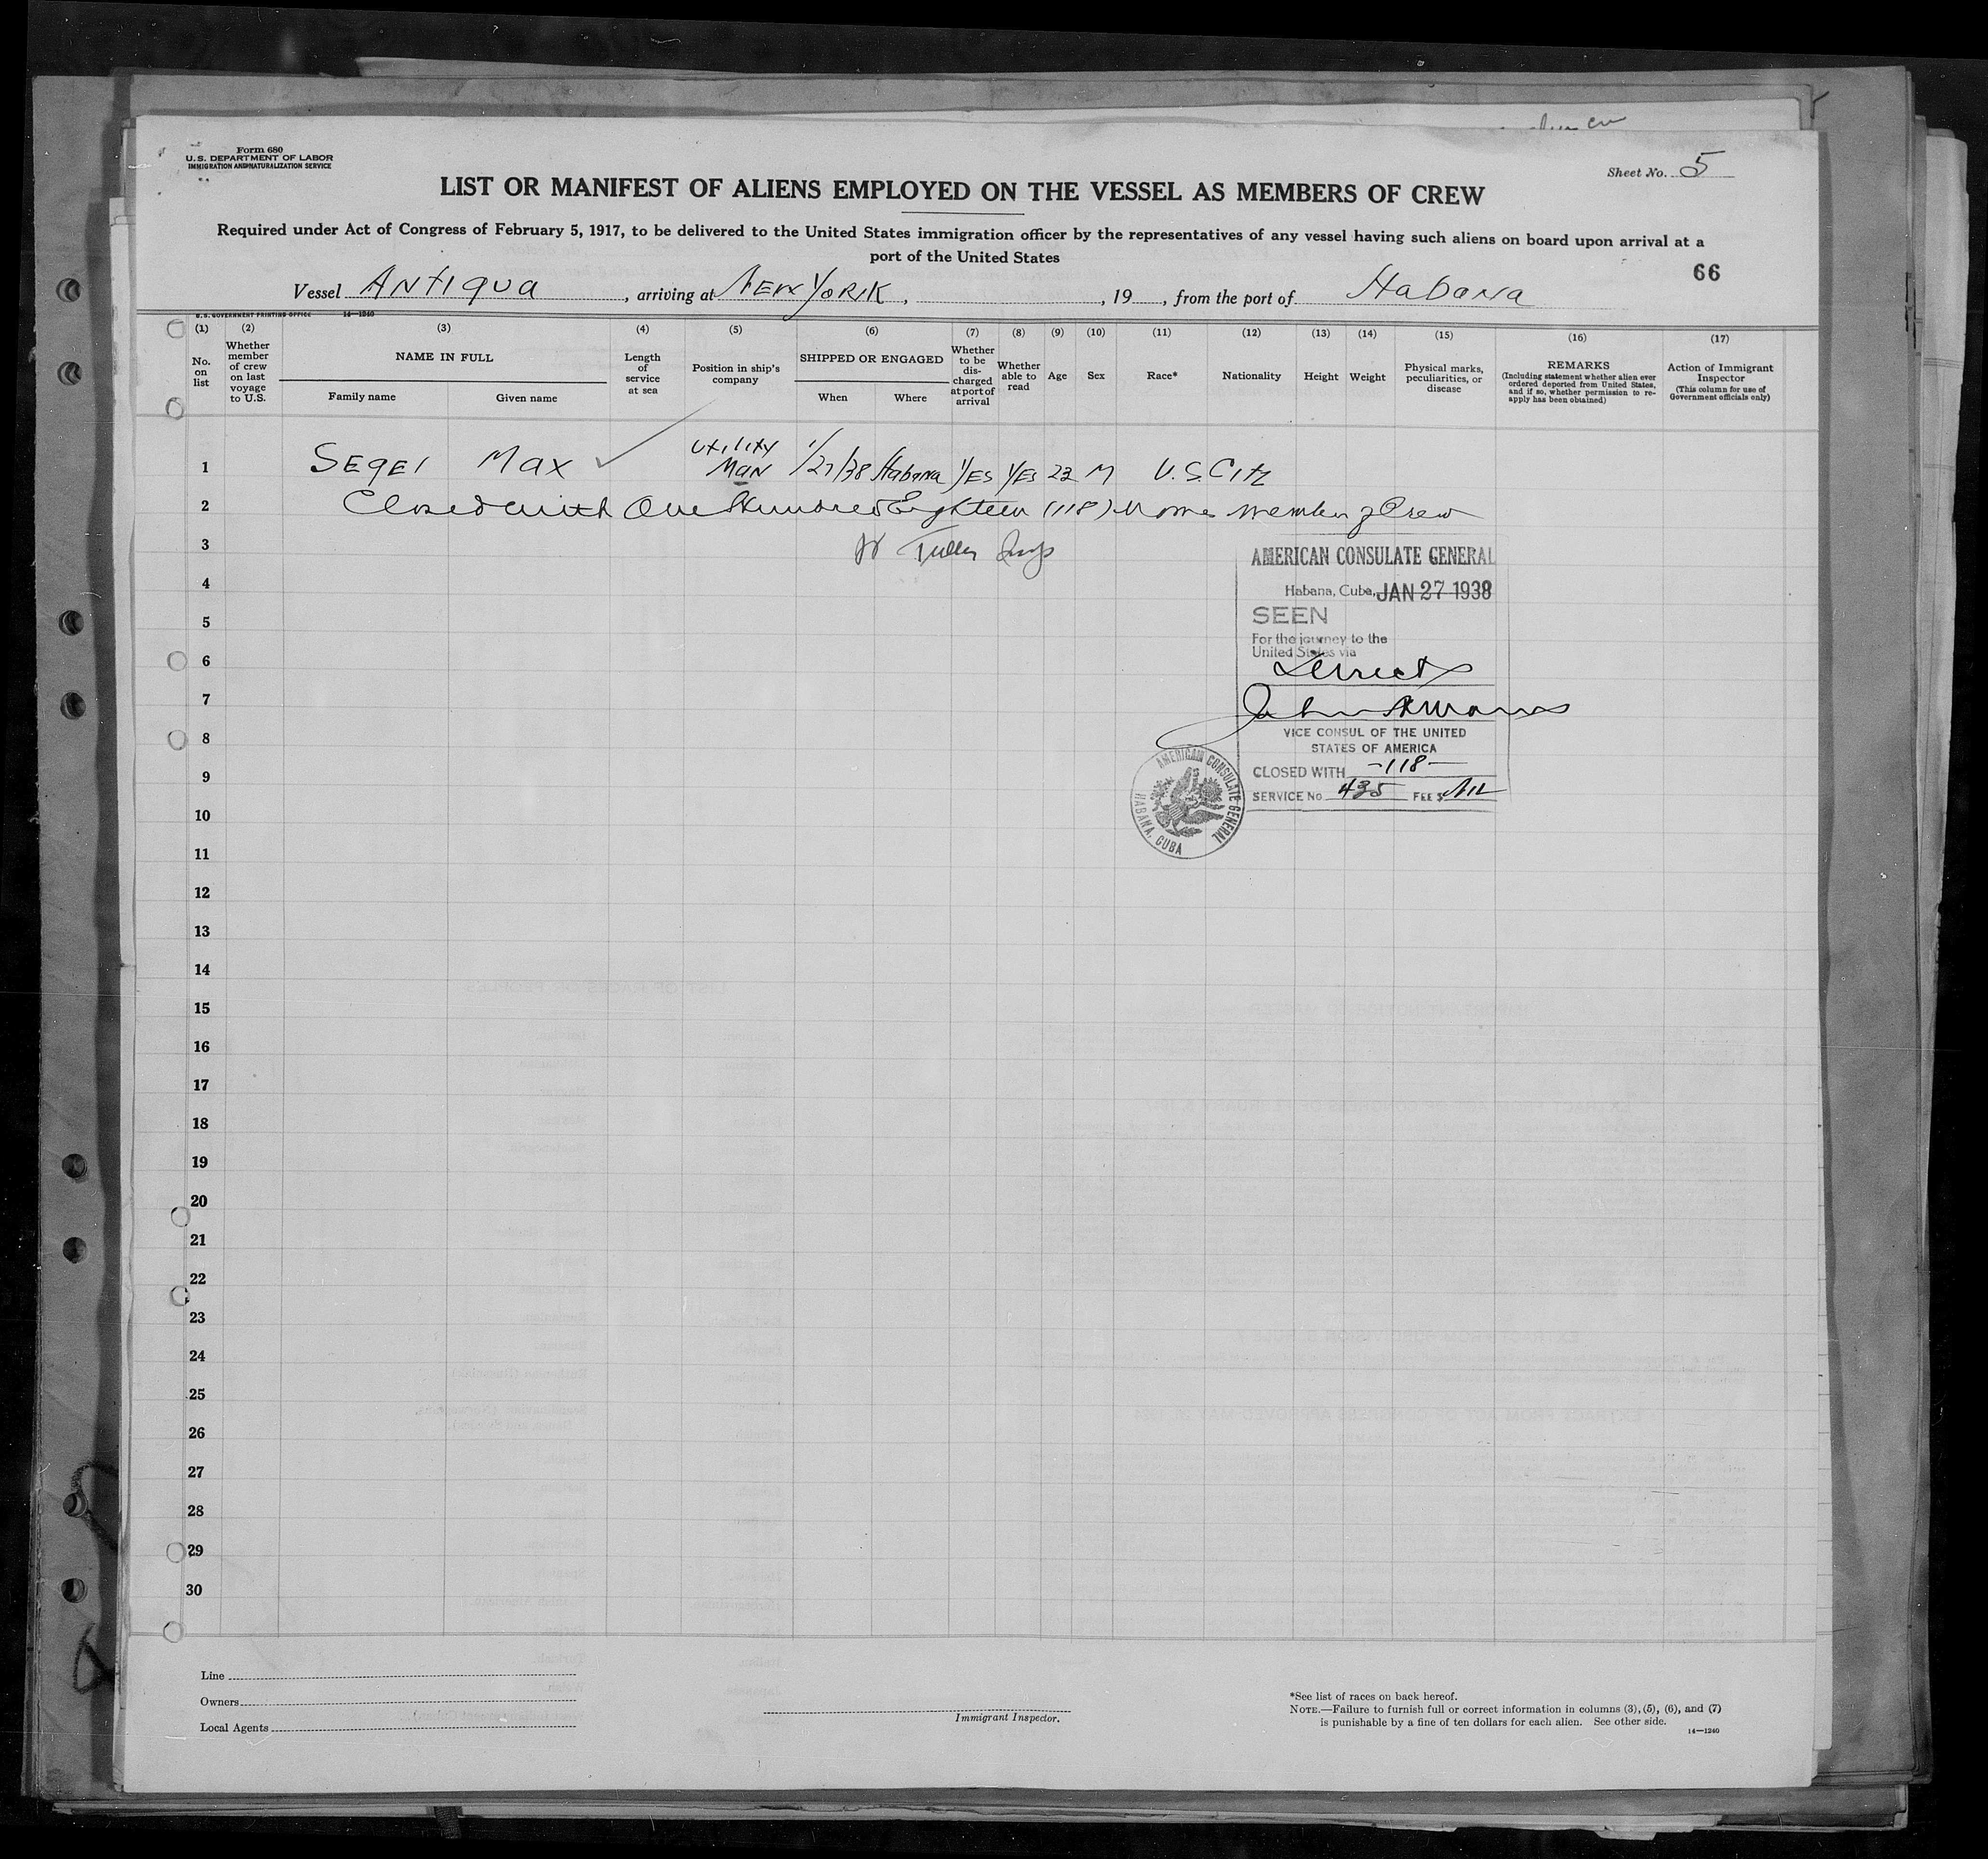 Form 680
U.S. DEPARTMENT OF LABOR
IMMIGRATION AND NATURALIZATION SERVICE
Sheet No. 5
LIST OR MANIFEST OF ALIENS EMPLOYED ON THE VESSEL AS MEMBERS OF CREW
Required under Act of Congress of February 5, 1917, to be delivered to the United States immigration officer by the representatives of any vessel having such aliens on board upon arrival at a
port of the United States
66
Vessel ANTIGUA, arriving at NEW YORK, , 19 , from the port of Habana
U.S. GOVERNMENT PRINTING OFFICE 14—1240
(1) (2) (3) (4) (5) (6) (7) (8) (9) (10) (11) (12) (13) (14) (15) (16) (17)
No. on list
Whether member of crew on last voyage to U.S.
NAME IN FULL
Family name Given name
Length of service at sea
Position in ship's company
SHIPPED OR ENGAGED
When Where
Whether to be discharged at port of arrival
Whether able to read
Age
Sex
Race*
Nationality
Height
Weight
Physical marks, peculiarities, or disease
REMARKS
(Including statement whether alien ever ordered deported from United States, and if so, whether permission to re-apply has been obtained)
Action of Immigrant Inspector
(This column for use of Government officials only)
1 SEGEl Max ✓ Utility Man 1/27/38 Habana YES YES 22 M U.S. Citz
2 Closed with One Hundred Eighteen (118) names members of Crew
3
4
5
6
7
8
9
10
11
12
13
14
15
16
17
18
19
20
21
22
23
24
25
26
27
28
29
30
AMERICAN CONSULATE GENERAL
Habana, Cuba, JAN 27 1938
SEEN
For the journey to the
United States via
Direct
VICE CONSUL OF THE UNITED
STATES OF AMERICA
CLOSED WITH -118-
SERVICE No. 435 FEE $ Nil
AMERICAN CONSULATE GENERAL
HABANA, CUBA
Line
Owners
Local Agents
Immigrant Inspector.
*See list of races on back hereof.
NOTE.—Failure to furnish full or correct information in columns (3), (5), (6), and (7)
is punishable by a fine of ten dollars for each alien. See other side.
14—1240